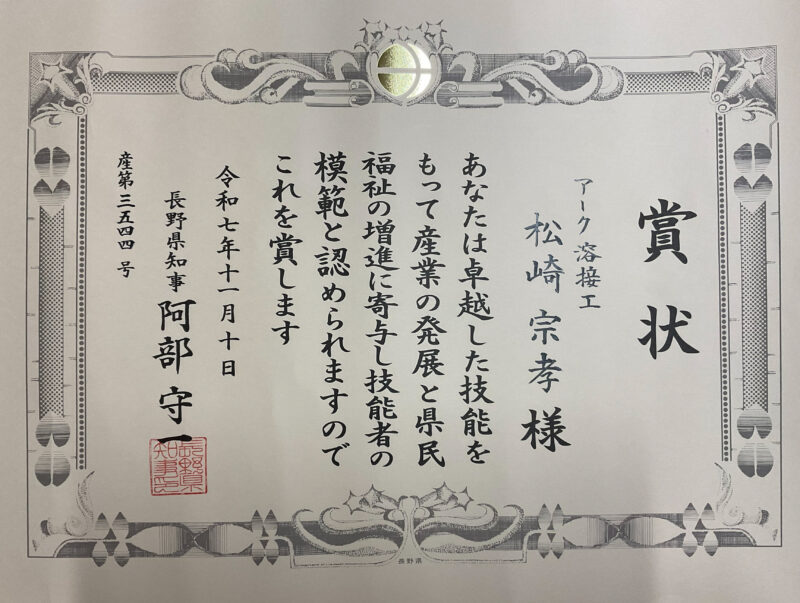 賞状
アーク溶接工
松崎宗孝様
あなたは卓越した技能を
もって産業の発展と県民
福祉の増進に寄与し技能者の
模範と認められますので
これを賞します
令和七年十一月十日
長野県知事 阿部守一
長野県知事之印
産第三五四四号
長野県